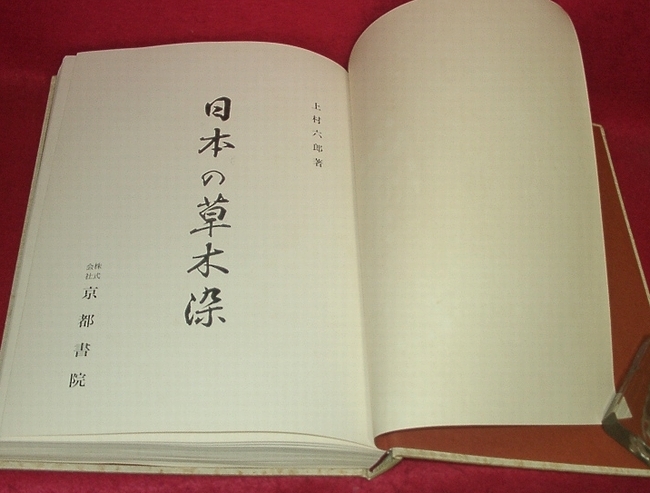 上村六郎著
日本の草木染
株式
会社
京都書院